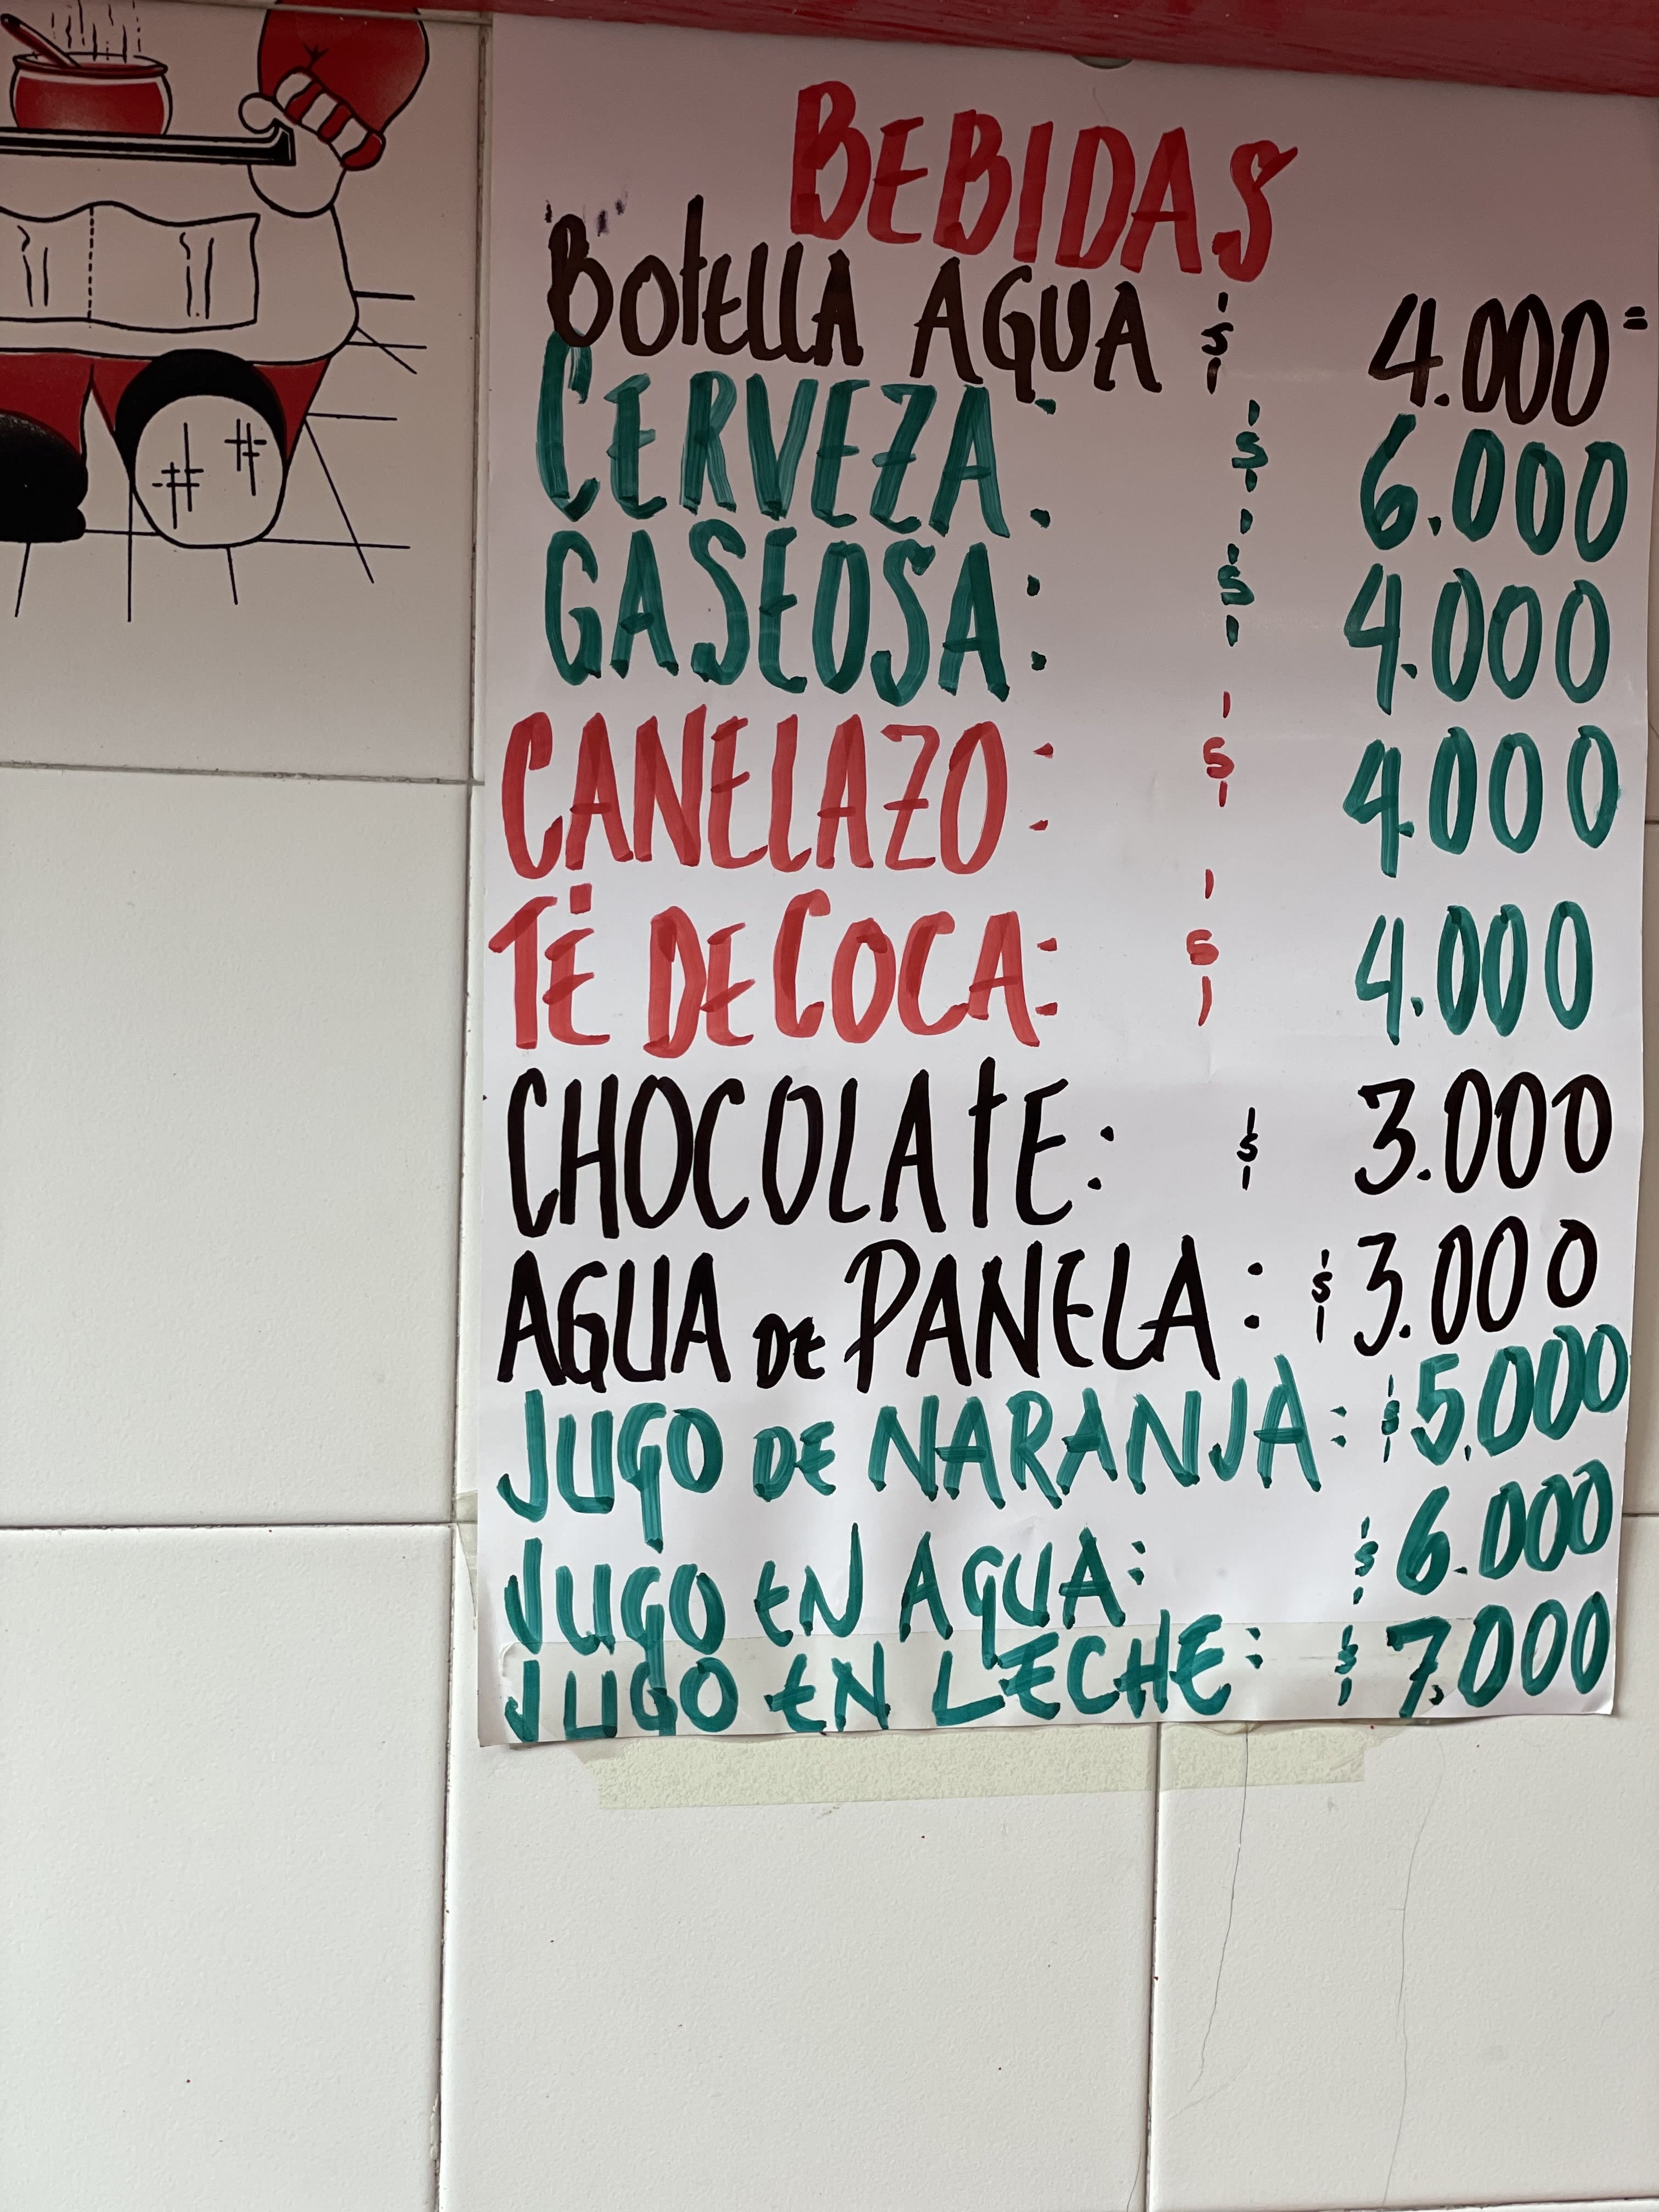 BEBIDAS
BOTELLA AGUA $ 4.000=
CERVEZA: $ 6.000
GASEOSA: $ 4.000
CANELAZO: $ 4.000
TÉ DE COCA: $ 4.000
CHOCOLATE: $ 3.000
AGUA DE PANELA: $ 3.000
JUGO DE NARANJA: $ 5.000
JUGO EN AGUA: $ 6.000
JUGO EN LECHE: $ 7.000